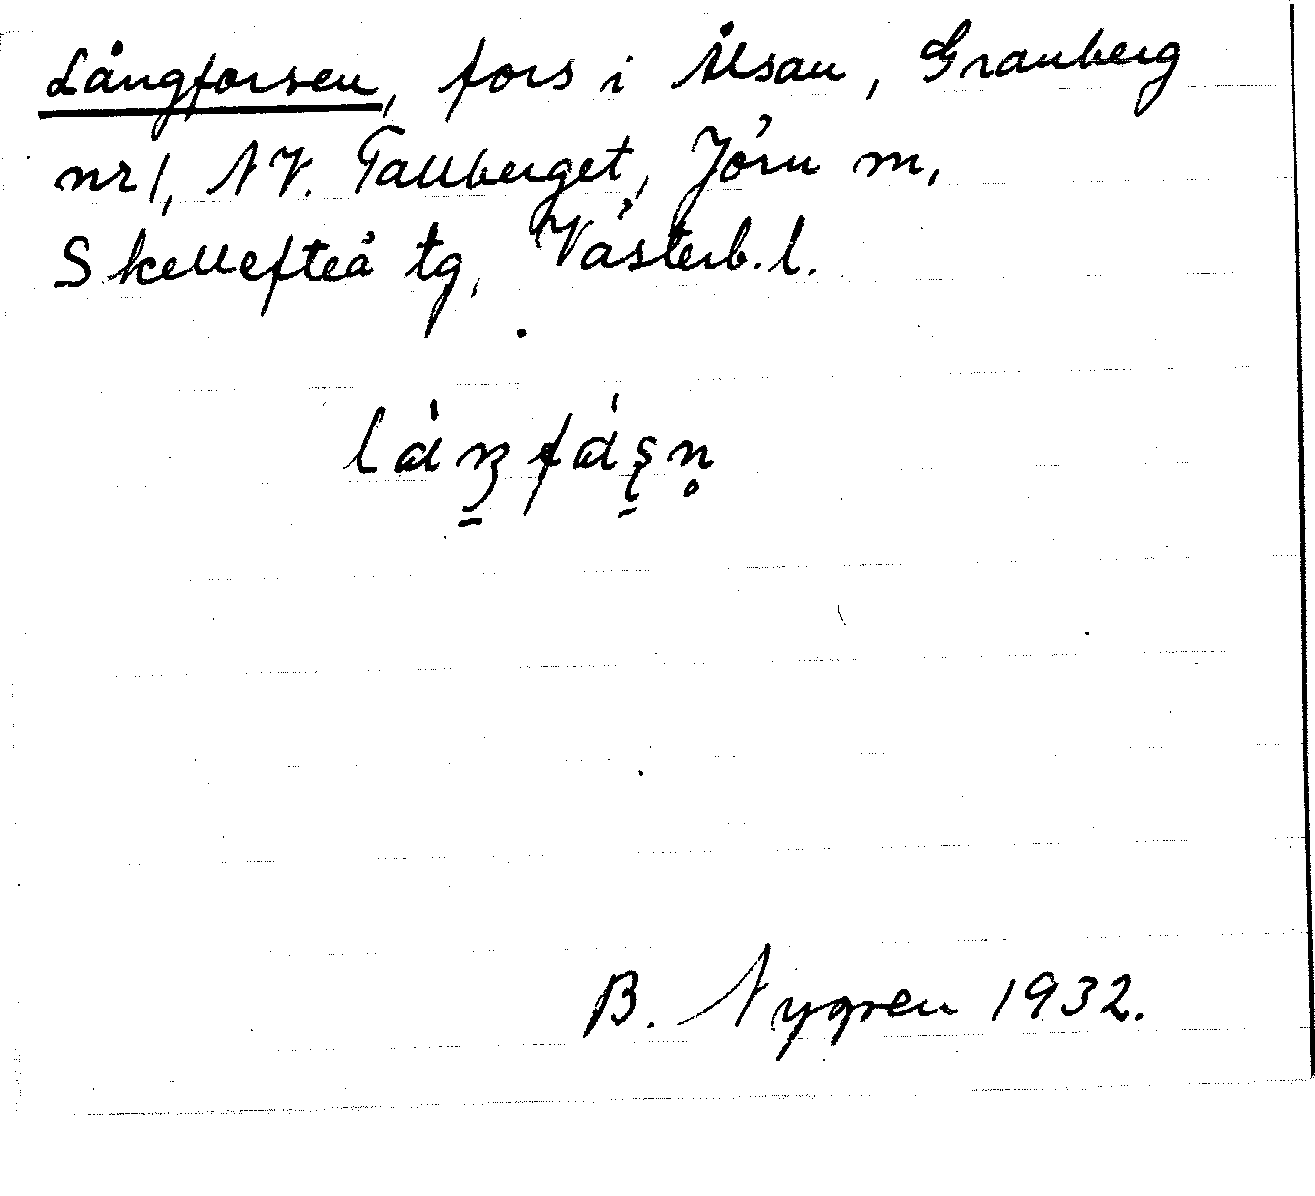 Långforsen, fors i Ålsån, Granberg
nr 1, NV. Tallberget, Jörn sn,
Skellefteå tg, Västerb. l.
B. Nygren 1932.